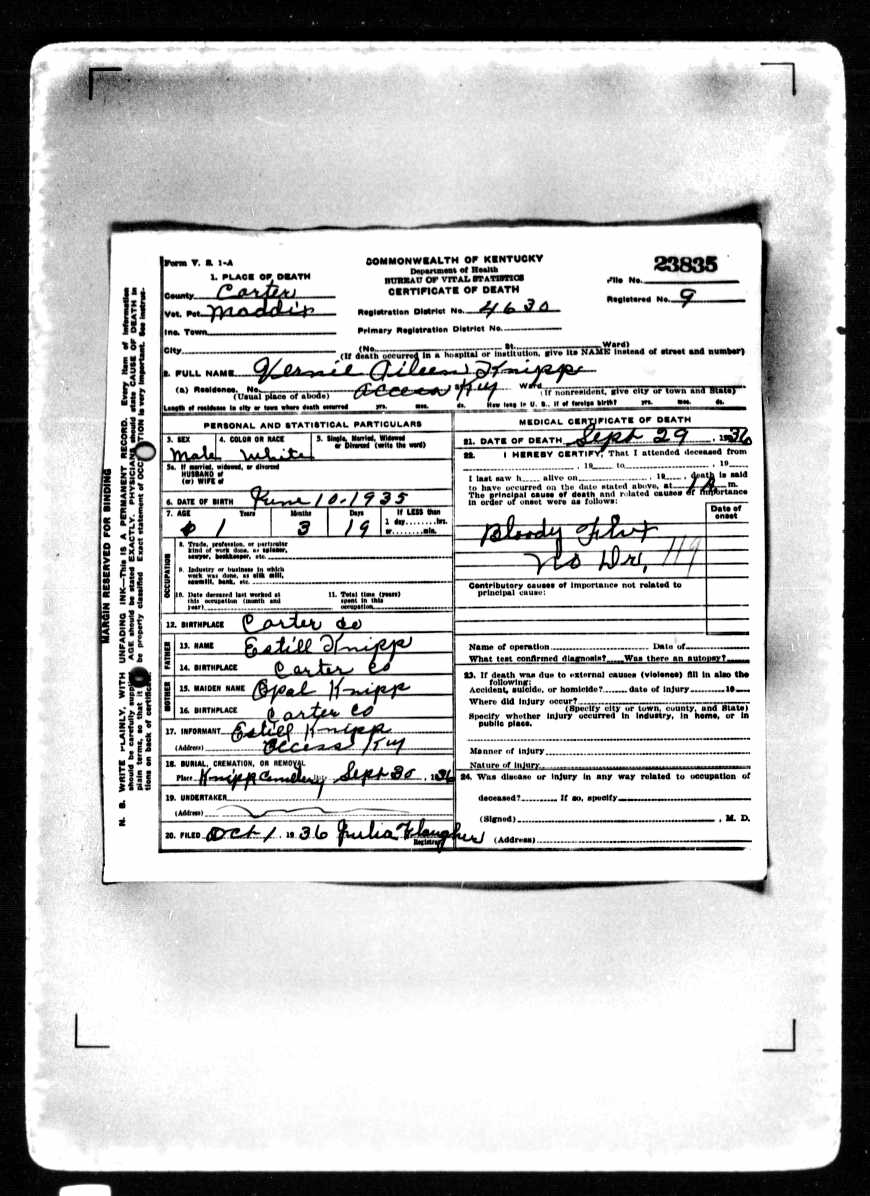 Form V. S. 1-A
COMMONWEALTH OF KENTUCKY
Department of Health
BUREAU OF VITAL STATISTICS
CERTIFICATE OF DEATH
23835
File No.
Registered No. 9
1. PLACE OF DEATH
County Carter
Vot. Pct. Maddix
Registration District No. 4630
Inc. Town
Primary Registration District No.
City (No. St. Ward)
(If death occurred in a hospital or institution, give its NAME instead of street and number)
2. FULL NAME Vernie Aileen Knipp
(a) Residence. No. Access Ky St. Ward
(Usual place of abode) (If nonresident, give city or town and State)
Length of residence in city or town where death occurred yrs. mos. ds. How long in U. S., if of foreign birth? yrs. mos. ds.
PERSONAL AND STATISTICAL PARTICULARS
3. SEX 4. COLOR OR RACE 5. Single, Married, Widowed or Divorced (write the word)
Male White
5a. If married, widowed, or divorced
HUSBAND of
(or) WIFE of
6. DATE OF BIRTH June 10-1935
7. AGE Years Months Days If LESS than
1 3 19 1 day, hrs.
or min.
OCCUPATION
8. Trade, profession, or particular
kind of work done, as spinner,
sawyer, bookkeeper, etc.
9. Industry or business in which
work was done, as silk mill,
sawmill, bank, etc.
10. Date deceased last worked at
this occupation (month and
year)
11. Total time (years)
spent in this
occupation
12. BIRTHPLACE Carter Co
FATHER
13. NAME Estill Knipp
14. BIRTHPLACE Carter Co
MOTHER
15. MAIDEN NAME Opal Knipp
16. BIRTHPLACE Carter Co
17. INFORMANT Estill Knipp
(Address) Access Ky
18. BURIAL, CREMATION, OR REMOVAL
Place Knipp Cemetery Sept 30, 1936
19. UNDERTAKER
(Address)
20. FILED Oct 1, 1936 Julia Flaugher
Registrar
MEDICAL CERTIFICATE OF DEATH
21. DATE OF DEATH Sept 29, 1936
22. I HEREBY CERTIFY, That I attended deceased from
, 19 to , 19
I last saw h alive on , 19 , death is said
to have occurred on the date stated above, at 1 A m.
The principal cause of death and related causes of importance
in order of onset were as follows:
Date of
onset
Bloody Flux
No Dr. 119
Contributory causes of importance not related to
principal cause:
Name of operation Date of
What test confirmed diagnosis? Was there an autopsy?
23. If death was due to external causes (violence) fill in also the
following:
Accident, suicide, or homicide? date of injury 19
Where did injury occur?
(Specify city or town, county, and State)
Specify whether injury occurred in industry, in home, or in
public place.
Manner of injury
Nature of injury
24. Was disease or injury in any way related to occupation of
deceased? If so, specify
(Signed) , M. D.
(Address)
MARGIN RESERVED FOR BINDING
N. B. WRITE PLAINLY, WITH UNFADING INK—This is A PERMANENT RECORD. Every item of information
should be carefully supplied. AGE should be stated EXACTLY. PHYSICIANS should state CAUSE OF DEATH in
plain terms, so that it may be properly classified. Exact statement of OCCUPATION is very important. See instruc-
tions on back of certificate.